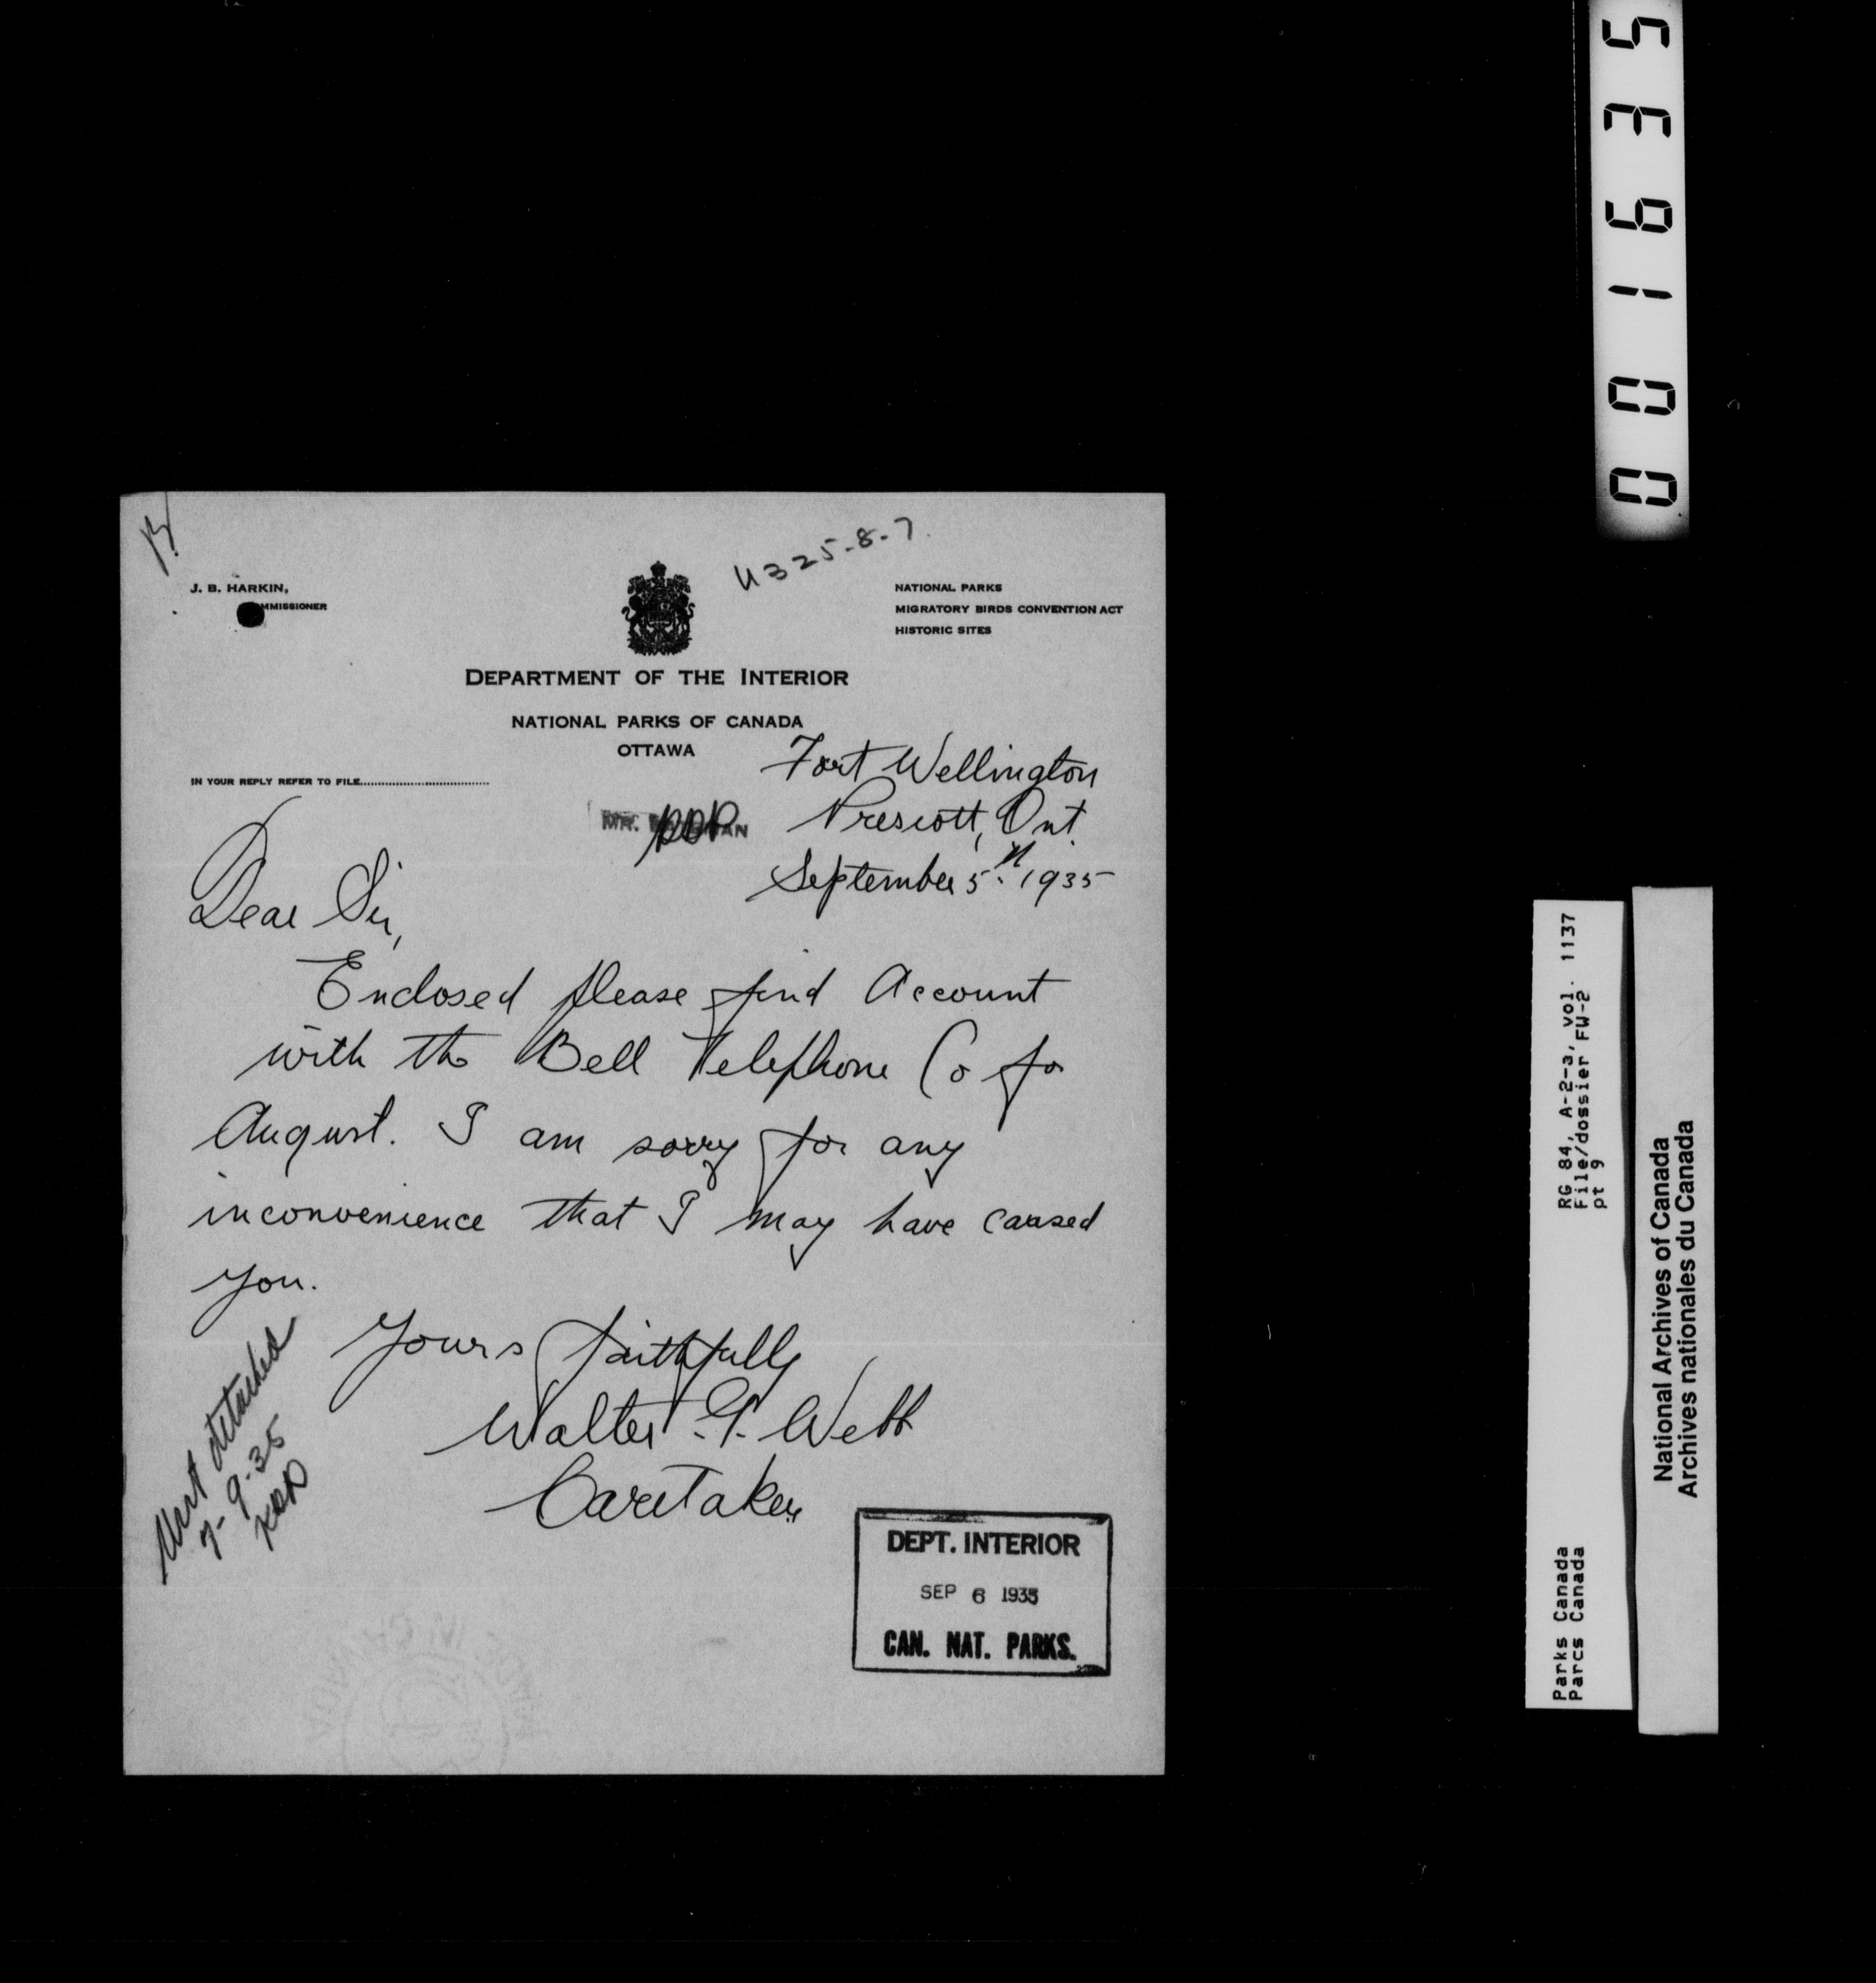 U325-8-7
J. B. HARKIN,
MMISSIONER
NATIONAL PARKS
MIGRATORY BIRDS CONVENTION ACT
HISTORIC SITES
DEPARTMENT OF THE INTERIOR
NATIONAL PARKS OF CANADA
OTTAWA
IN YOUR REPLY REFER TO FILE
Fort Wellington
MR.
Prescott, Ont.
September 5th 1935
Dear Sir,
Enclosed please find Account
with the Bell Telephone Co for
August. I am sorry for any
inconvenience that I may have caused
you.
Yours faithfully
Walter G. Webb
Caretaker
detached
7-9-35
DEPT. INTERIOR
SEP 6 1935
CAN. NAT. PARKS.
001635
RG 84, A-2-3, vol. 1137
File/dossier FW-2
pt 9
Parks Canada
Parcs Canada
National Archives of Canada
Archives nationales du Canada